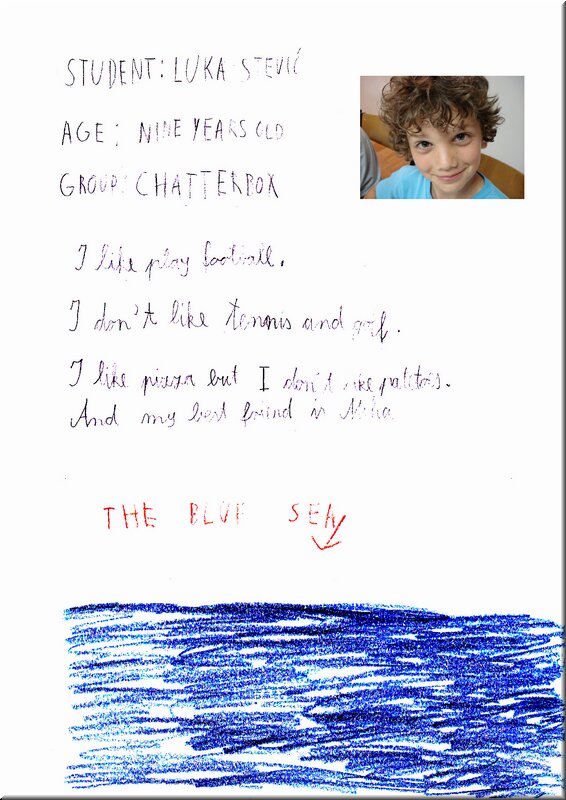 STUDENT: LUKA STEVIĆ
AGE: NINE YEARS OLD
GROUP: CHATTERBOX
I like play football.
I don't like tennis and golf.
I like pizza but I don't like
And my best friend is
THE BLUE SEA